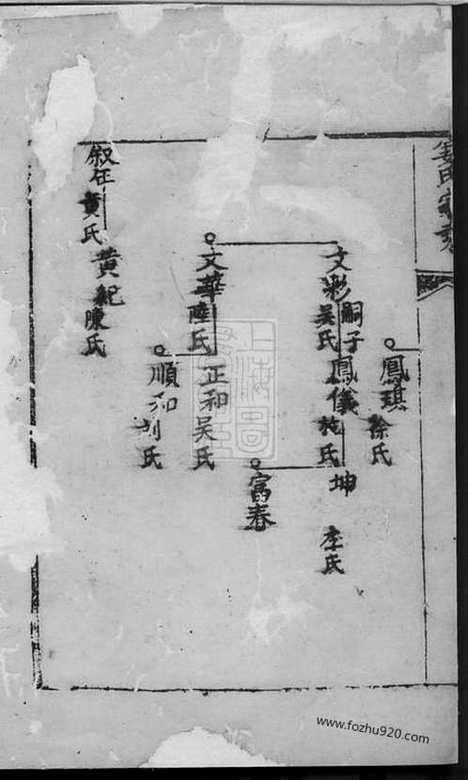 鳳琪
徐氏
文彩
吳氏
嗣子
鳳儀
施氏
坤
李氏
富春
文華
陸氏
正和
吳氏
順和
氏
叙任
黃氏
黃紀
陳氏
www.fozhu920.com